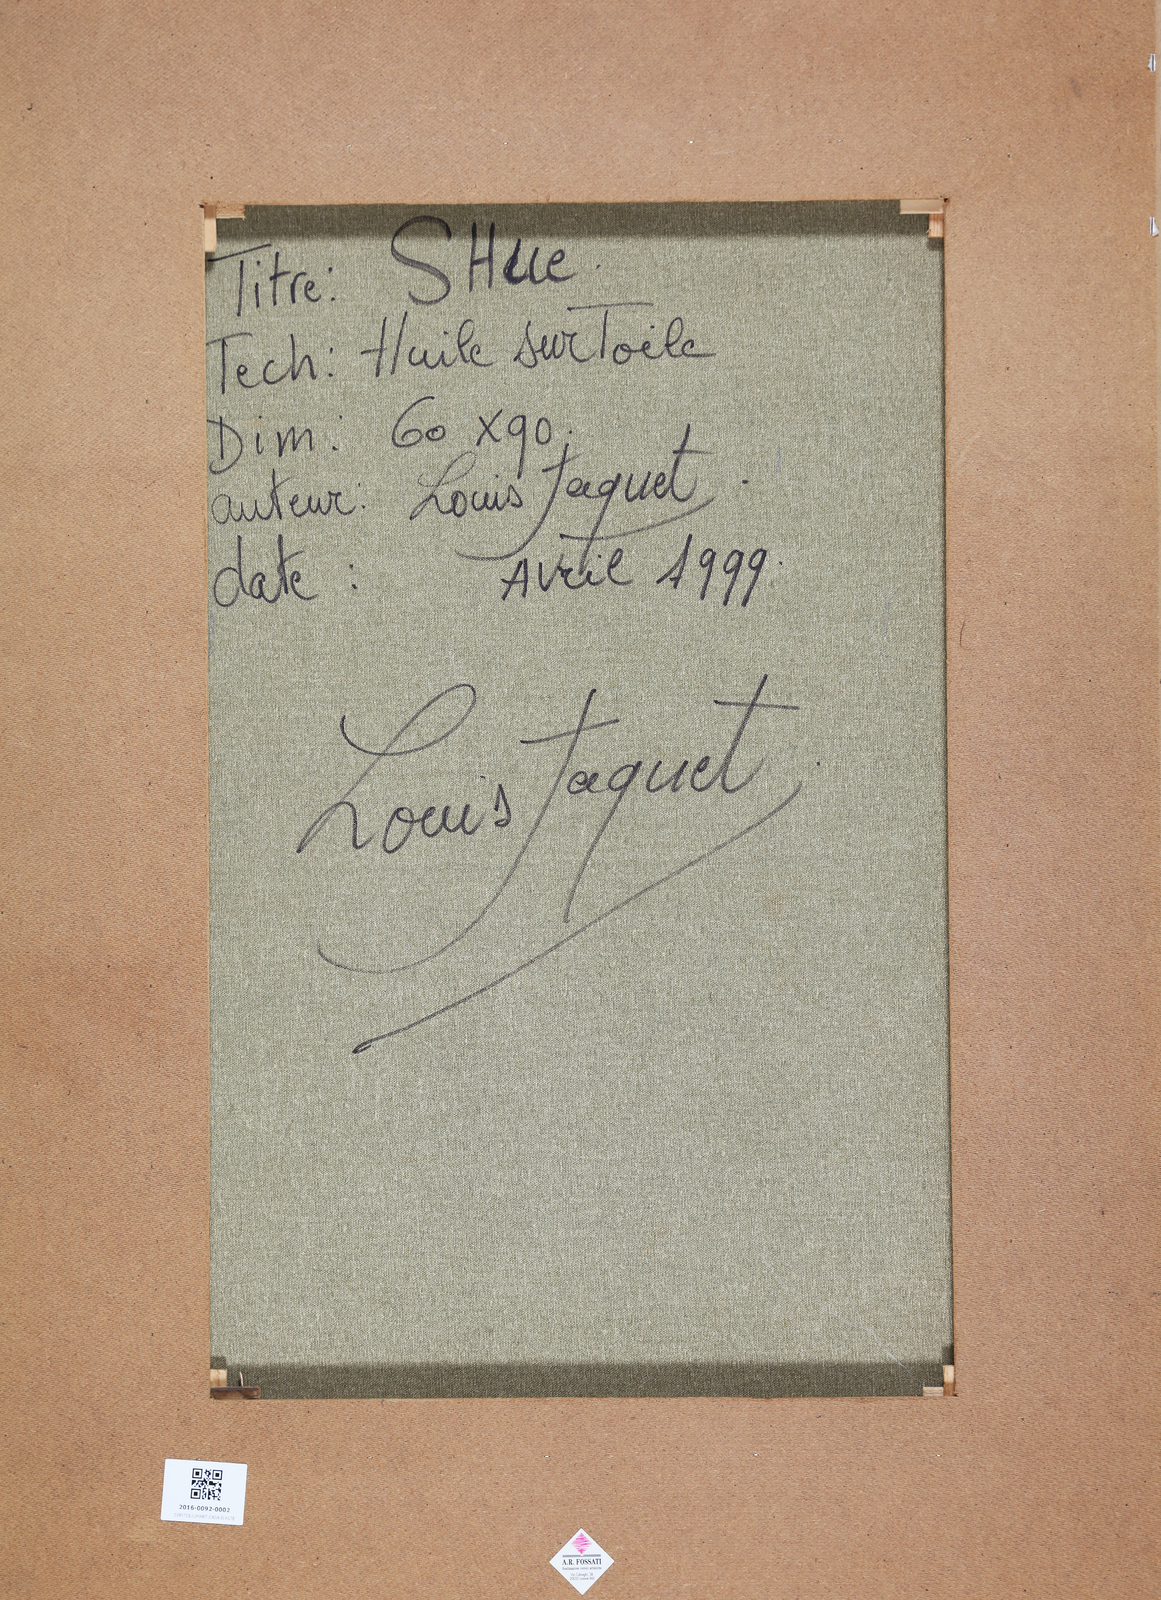 Titre: SHue.
Tech: Huile sur Toile
Dim: 60 x 90.
auteur: Louis Jaquet.
date : Avril 1999.
Louis Jaquet.
2016-0092-0002
A.R. FOSSATI